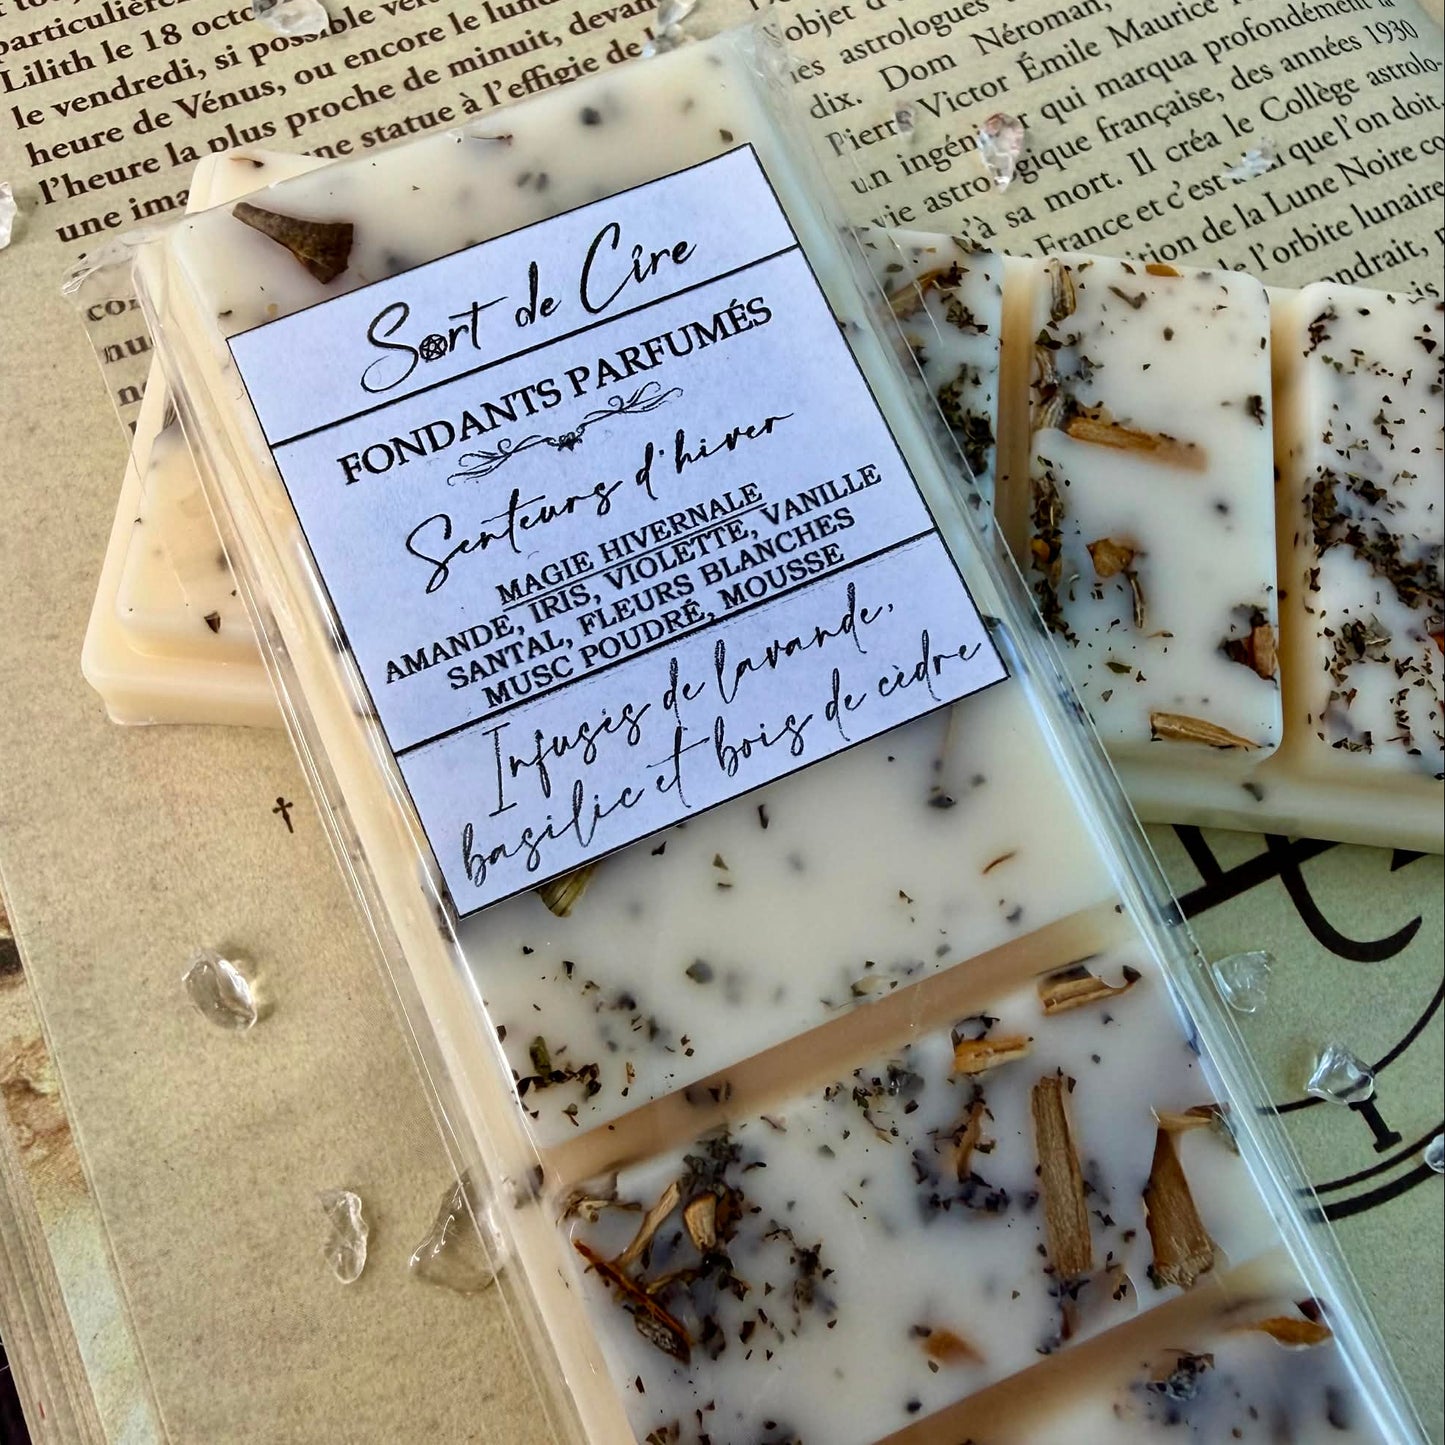 particulière
Lilith le 18
le vendredi, si possible
heure de Vénus, ou encore le lund
l'heure la plus proche de minuit, devan
une statue à l'effigie de
les astrologues
dix. Dom Néroman,
Pierre Victor Émile Maurice
un ingénier qui marqua profondément la
vie astrologique française, des années 1930
à sa mort. Il créa le Collège astrolo-
France et c'est que l'on doit,
de la Lune Noire
l'orbite lunaire
Sort de Cire
FONDANTS PARFUMÉS
Senteurs d'hiver
MAGIE HIVERNALE
AMANDE, IRIS, VIOLETTE, VANILLE
SANTAL, FLEURS BLANCHES
MUSC POUDRÉ, MOUSSE
Infusés de lavande,
basilic et bois de cèdre